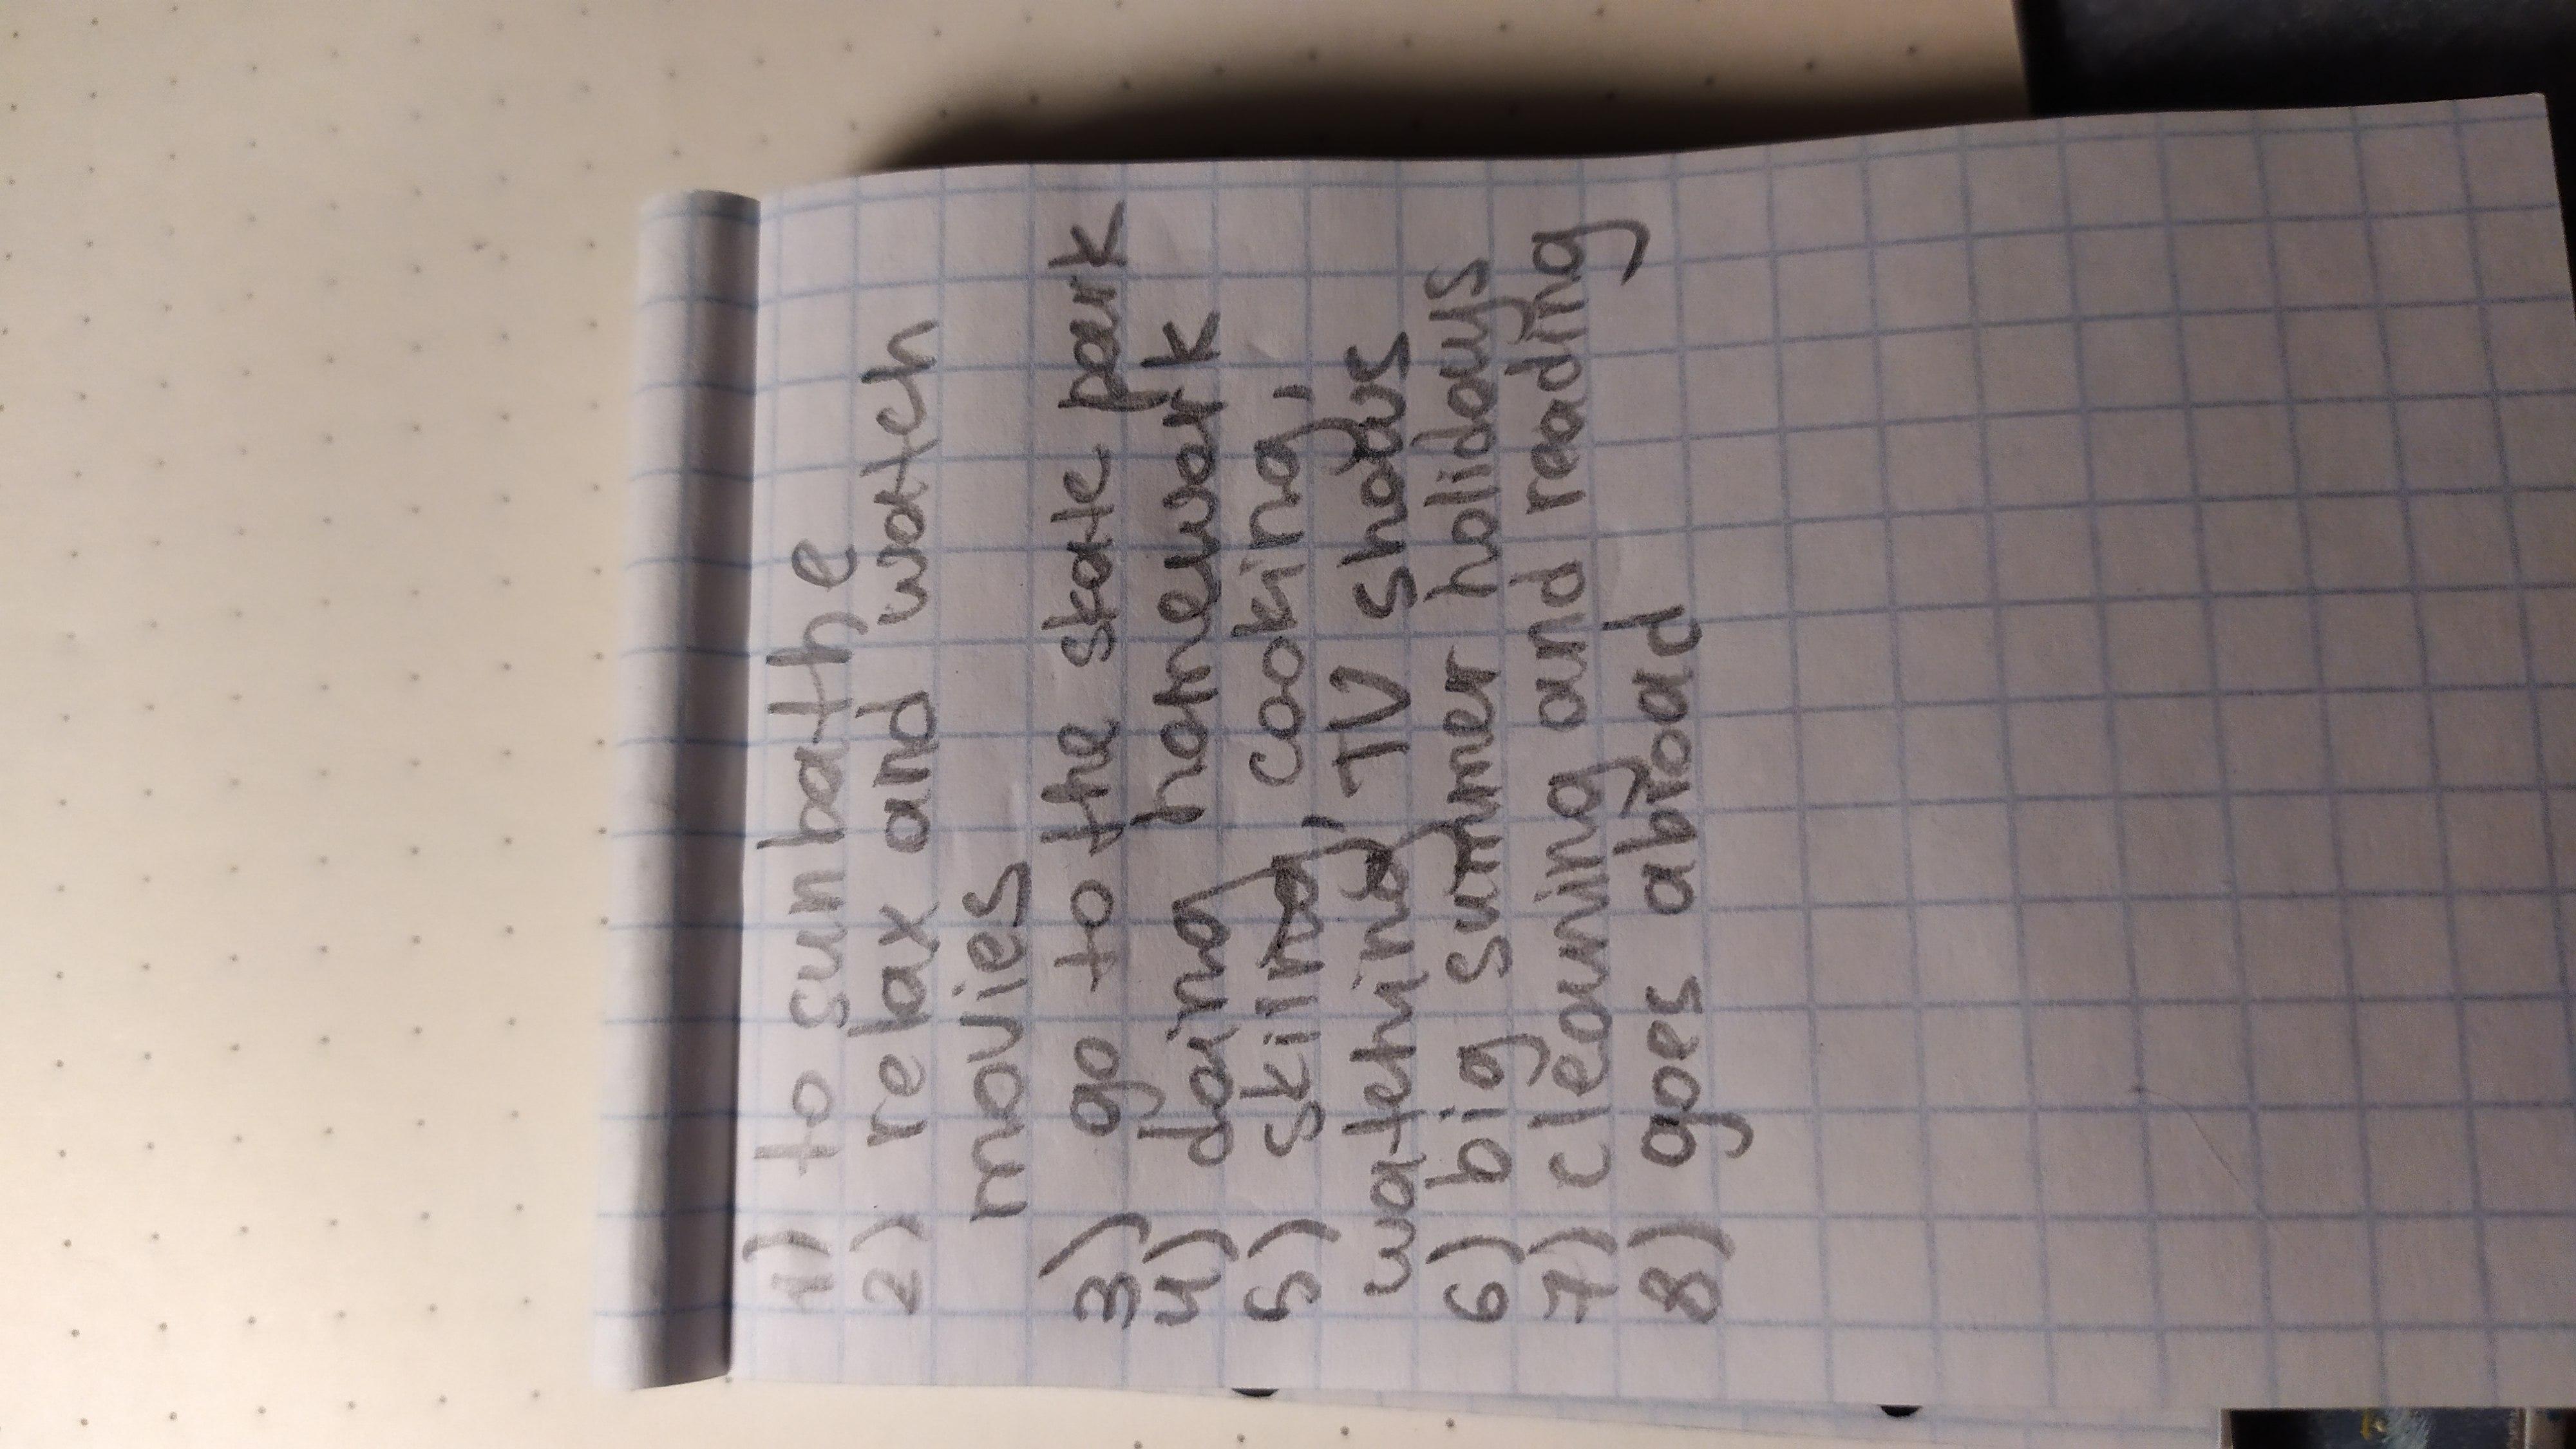 1) to sunbathe
2) relax and watch
movies
3) go to the skate park
4) doing homework
5) skiing, cooking,
watching TV shows
6) big summer holidays
7) cleaning and reading
8) goes abroad